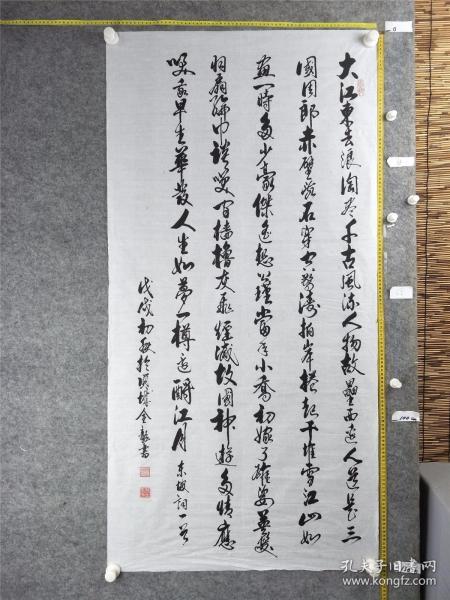 大江東去浪淘盡千古風流人物故壘西邊人道是三
國周郎赤壁亂石穿空驚濤拍岸捲起千堆雪江山如
畫一時多少豪傑遙想公瑾當年小喬初嫁了雄姿英發
羽扇綸巾談笑間檣櫓灰飛煙滅故國神遊多情應
笑我早生華發人生如夢一樽還酹江月 東坡詞一首
戊戌初秋於城金書
孔夫子旧书网
www.kongfz.com